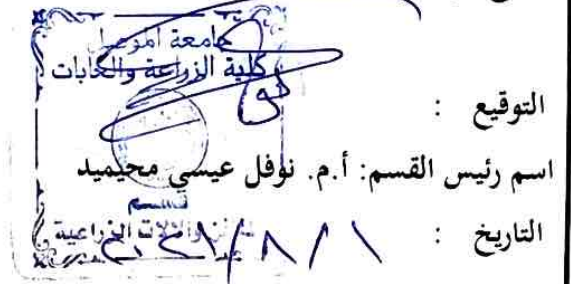 جامعة الموصل
كلية الزراعة والغابات
التوقيع :
اسم رئيس القسم: أ.م. نوفل عيسى محيميد
قسم
والالات الزراعية
التاريخ :